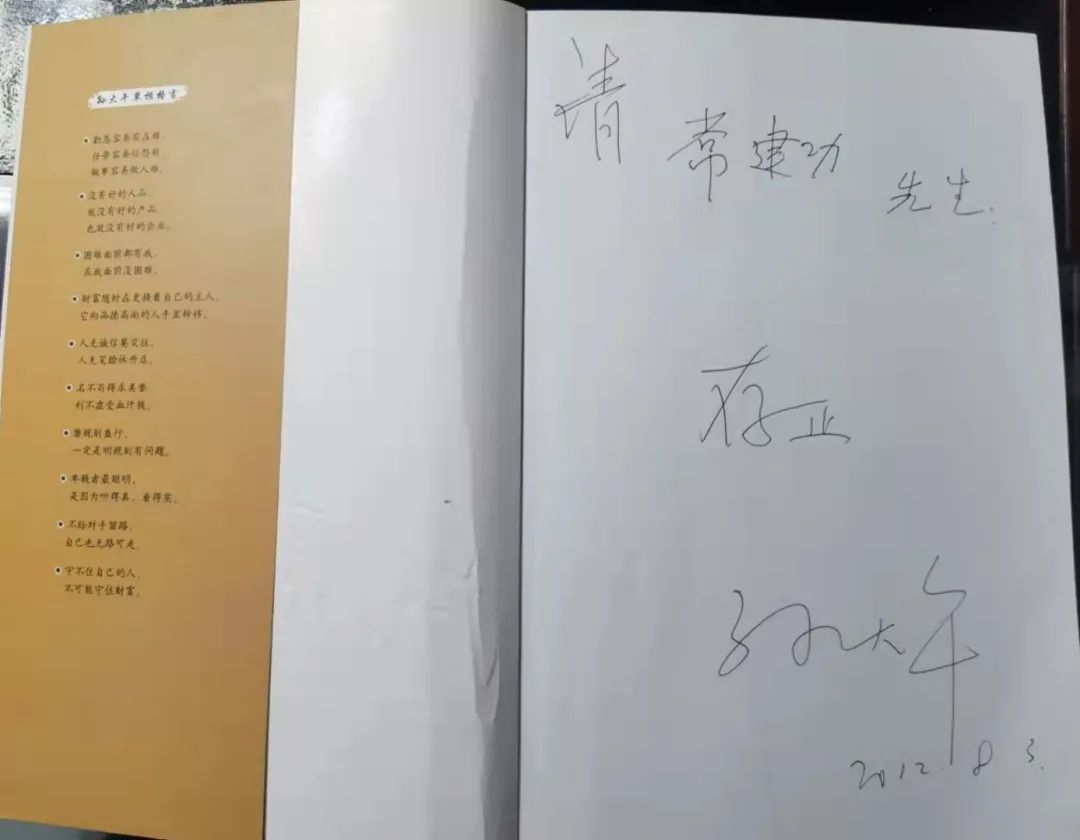 孙大午草根格言
勤恳容易实在难，
任劳容易任怨难，
做事容易做人难。
没有好的人品，
就没有好的产品，
也就没有好的企业。
困难面前都有我，
在我面前没困难。
财富随时在更换着自己的主人，
它向品德高尚的人手里转移。
人无诚信莫交往，
人无笑脸休开店。
名不苟得求美誉
利不虚受血汗钱。
潜规则盛行，
一定是明规则有问题。
卑贱者最聪明，
是因为听得真、看得实。
不给对手留路，
自己也无路可走。
守不住自己的人，
不可能守住财富。
请
常建功
先生：
存正
孙大午
2012.8.3.